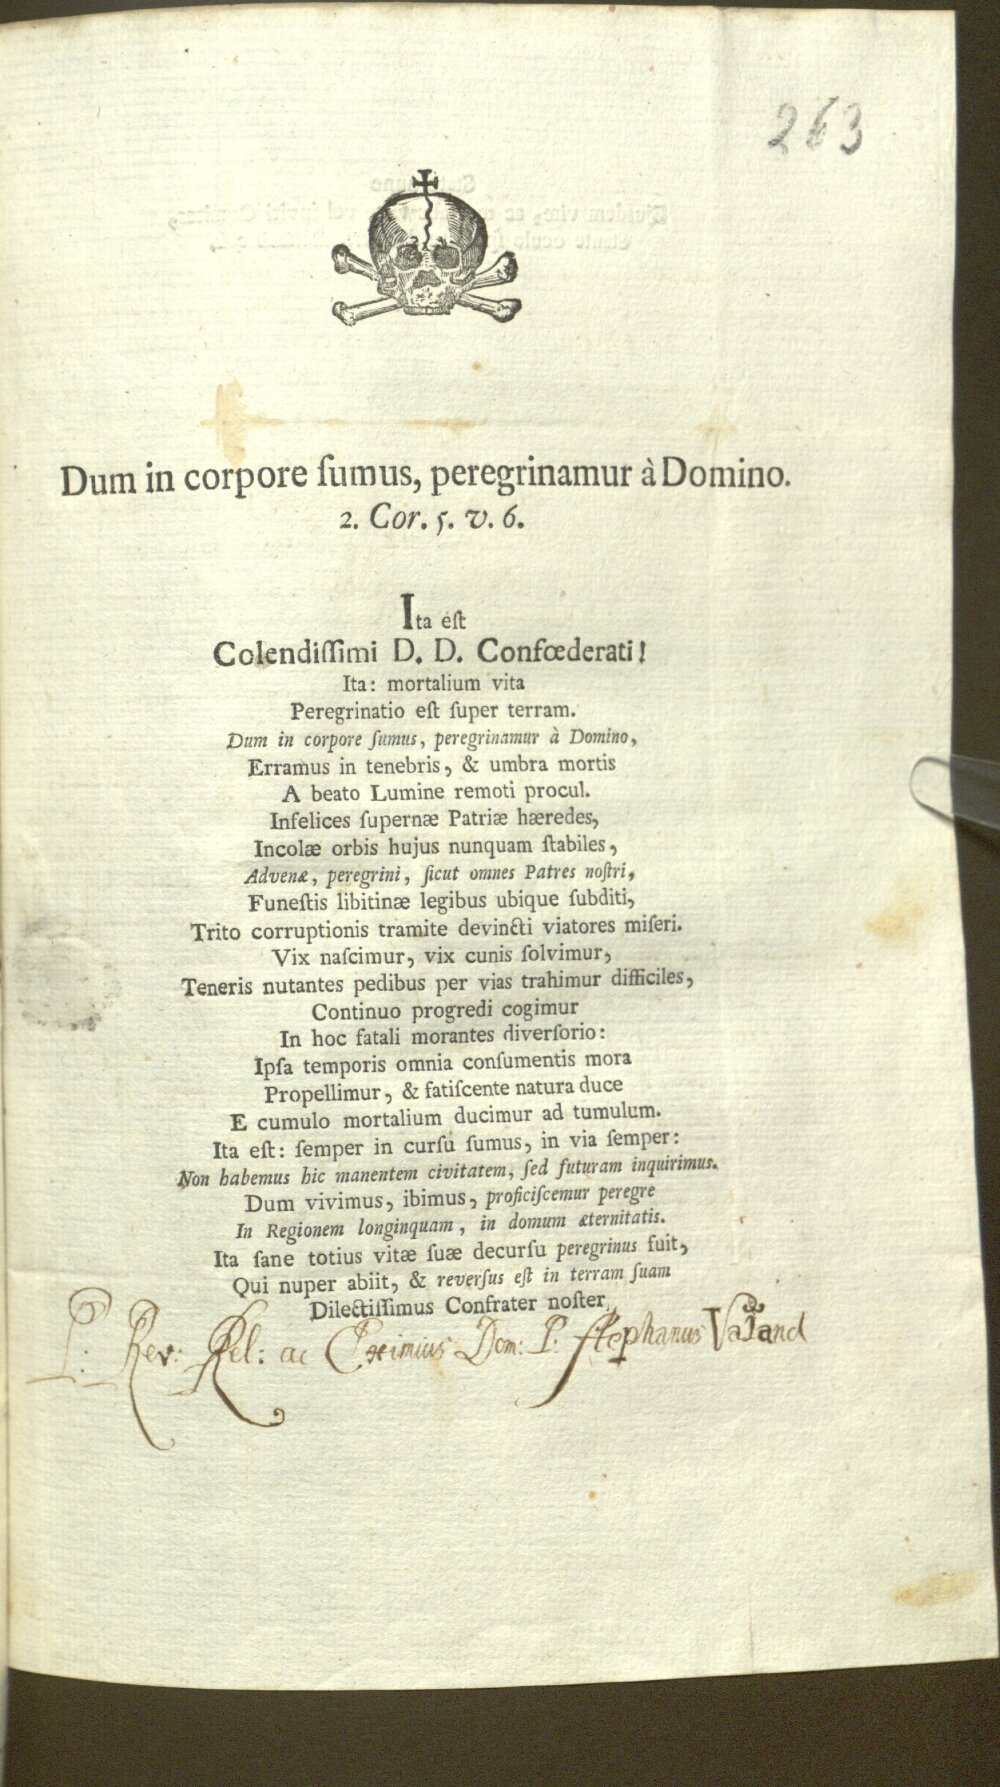 263
Dum in corpore ſumus, peregrinamur à Domino.
2. Cor. 5. v. 6.
Ita eſt
Colendiſſimi D. D. Confœderati!
Ita: mortalium vita
Peregrinatio eſt ſuper terram.
Dum in corpore ſumus, peregrinamur à Domino,
Erramus in tenebris, & umbra mortis
A beato Lumine remoti procul.
Infelices ſupernæ Patriæ hæredes,
Incolæ orbis hujus nunquam ſtabiles,
Advenæ, peregrini, ſicut omnes Patres noſtri,
Funeſtis libitinæ legibus ubique ſubditi,
Trito corruptionis tramite devincti viatores miſeri.
Vix naſcimur, vix cunis ſolvimur,
Teneris nutantes pedibus per vias trahimur difficiles,
Continuo progredi cogimur
In hoc fatali morantes diverſorio:
Ipſa temporis omnia conſumentis mora
Propellimur, & fatiſcente natura duce
E cumulo mortalium ducimur ad tumulum.
Ita eſt: ſemper in curſu ſumus, in via ſemper:
Non habemus hic manentem civitatem, ſed futuram inquirimus.
Dum vivimus, ibimus, proficiſcemur peregre
In Regionem longinquam, in domum æternitatis.
Ita ſane totius vitæ ſuæ decurſu peregrinus fuit,
Qui nuper abiit, & reverſus eſt in terram ſuam
Dilectiſſimus Confrater noſter
Rev: Rel: ac Eximius Dom: P: Stephanus